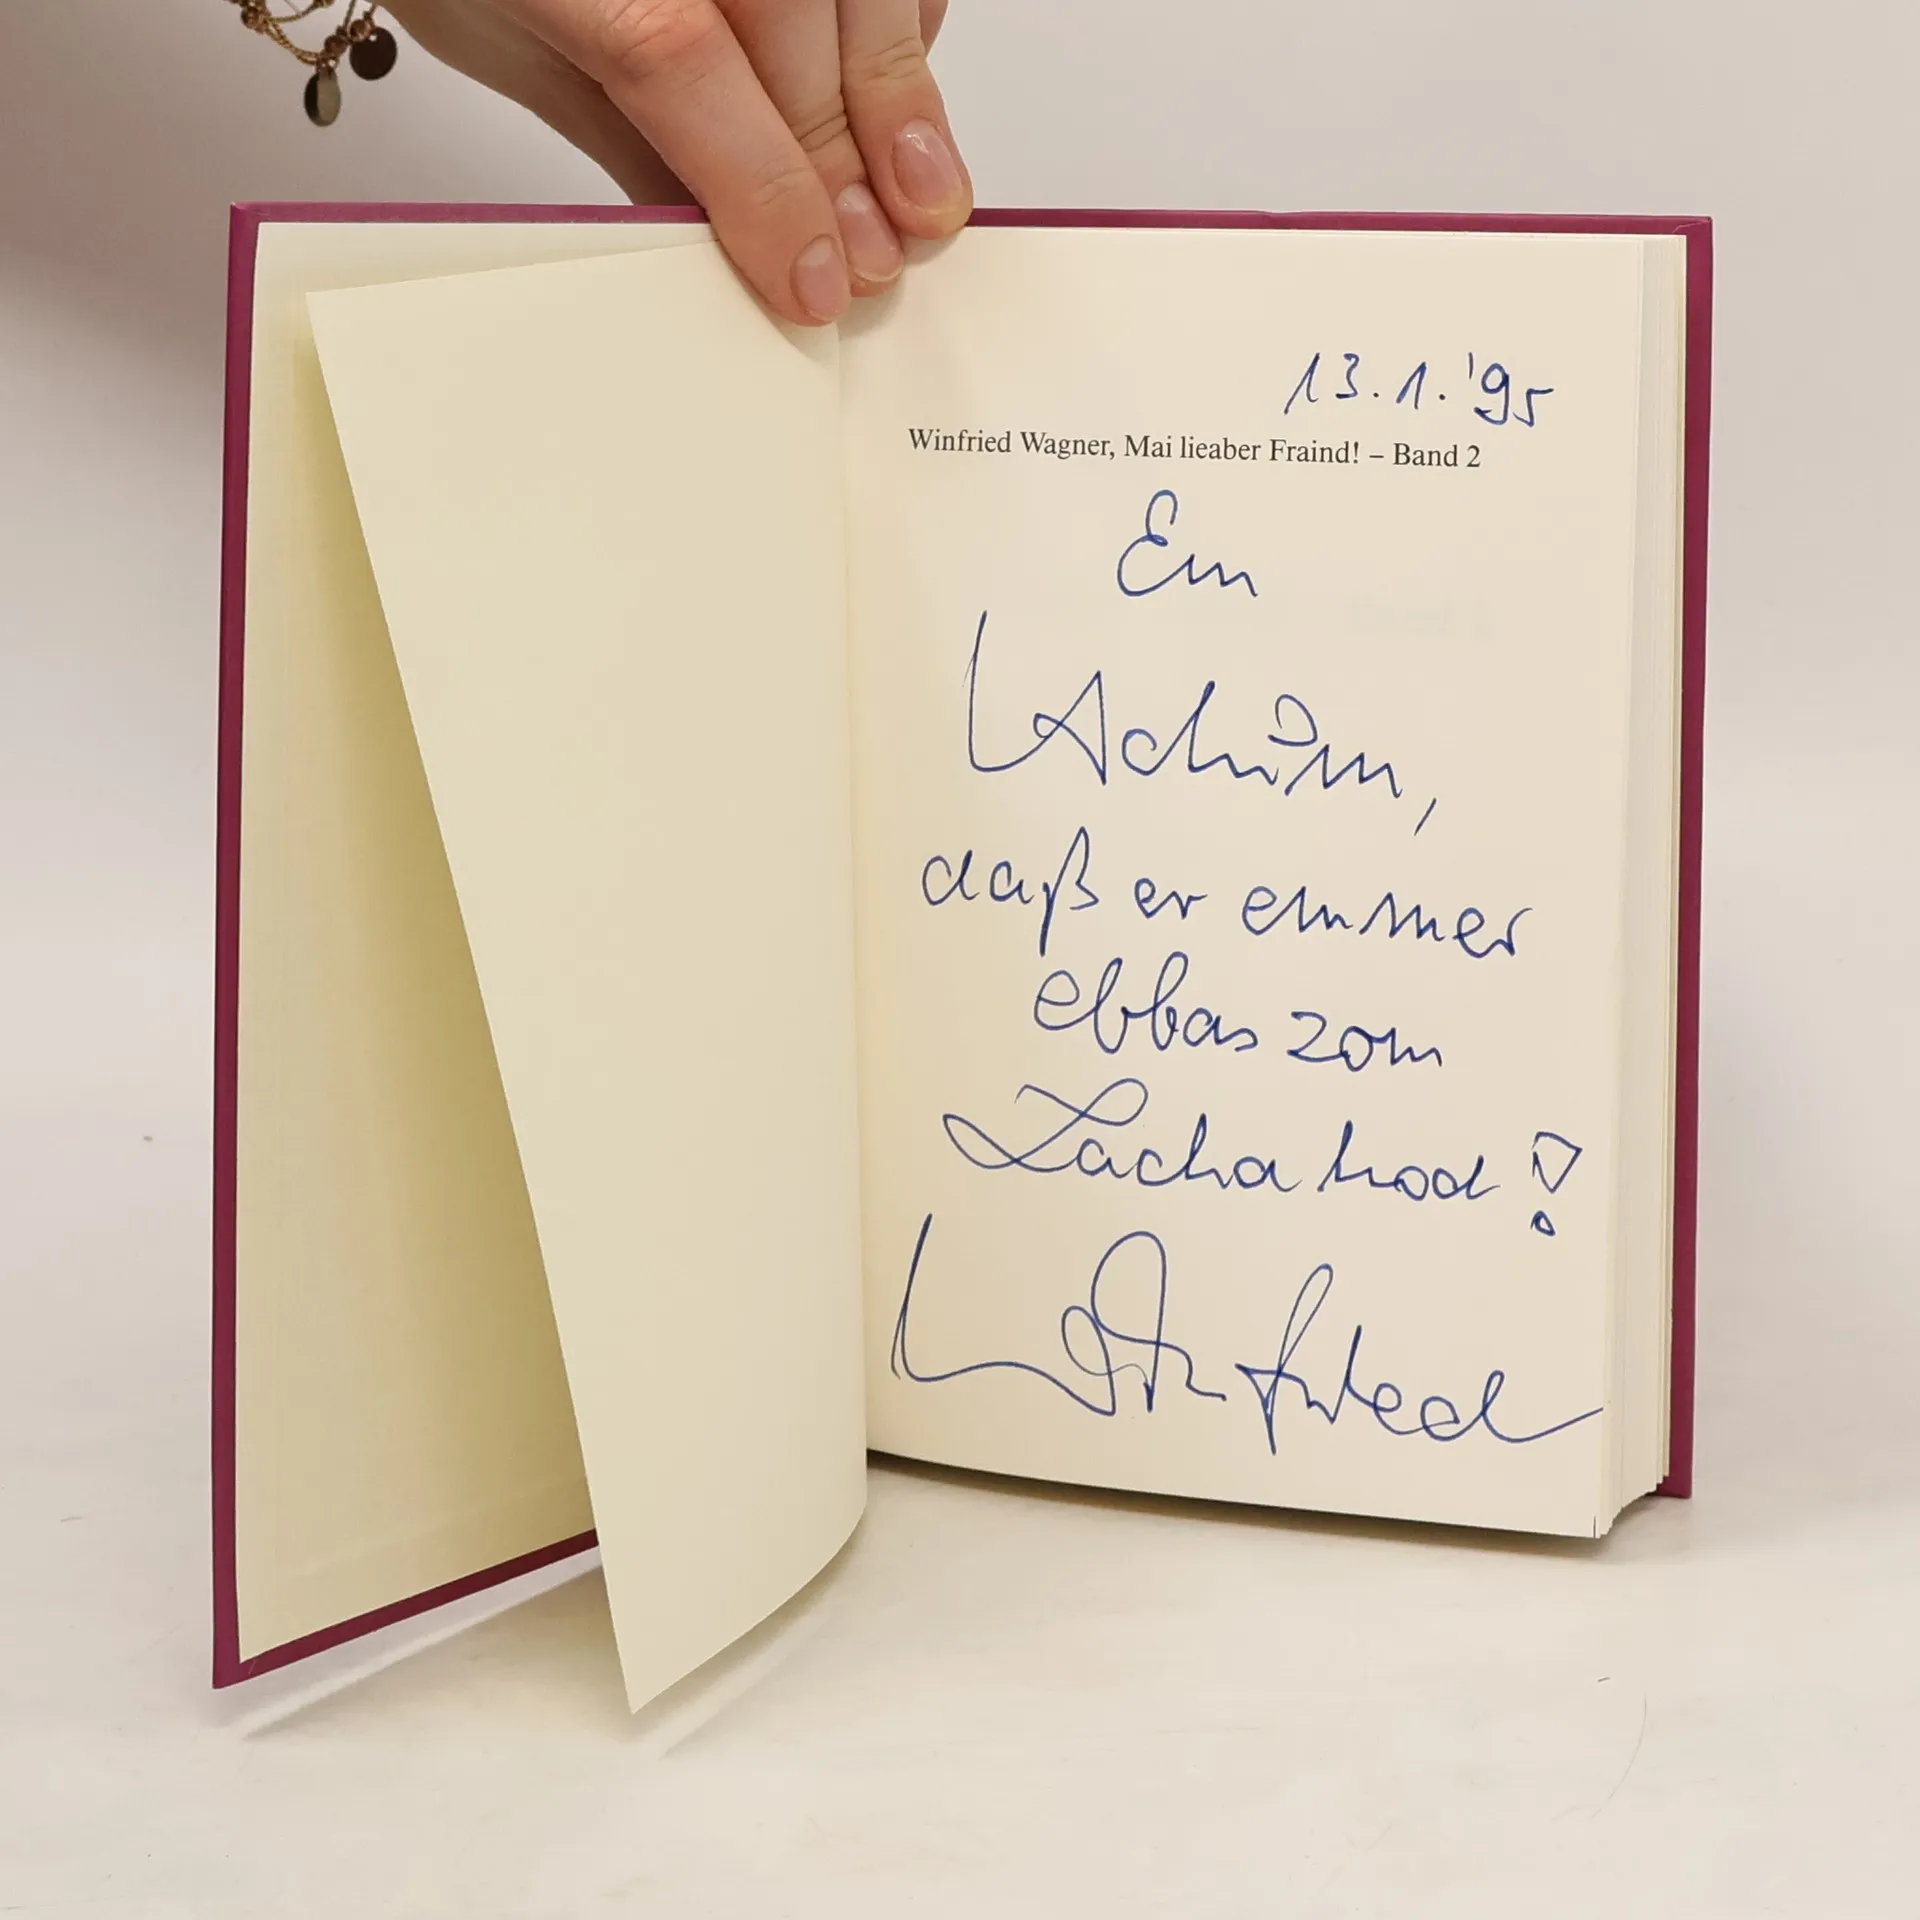 13.1.'95
Winfried Wagner, Mai lieaber Fraind! – Band 2
Em
Achim,
daß er emmer
ebbas zom
Lacha hod!
Winfried